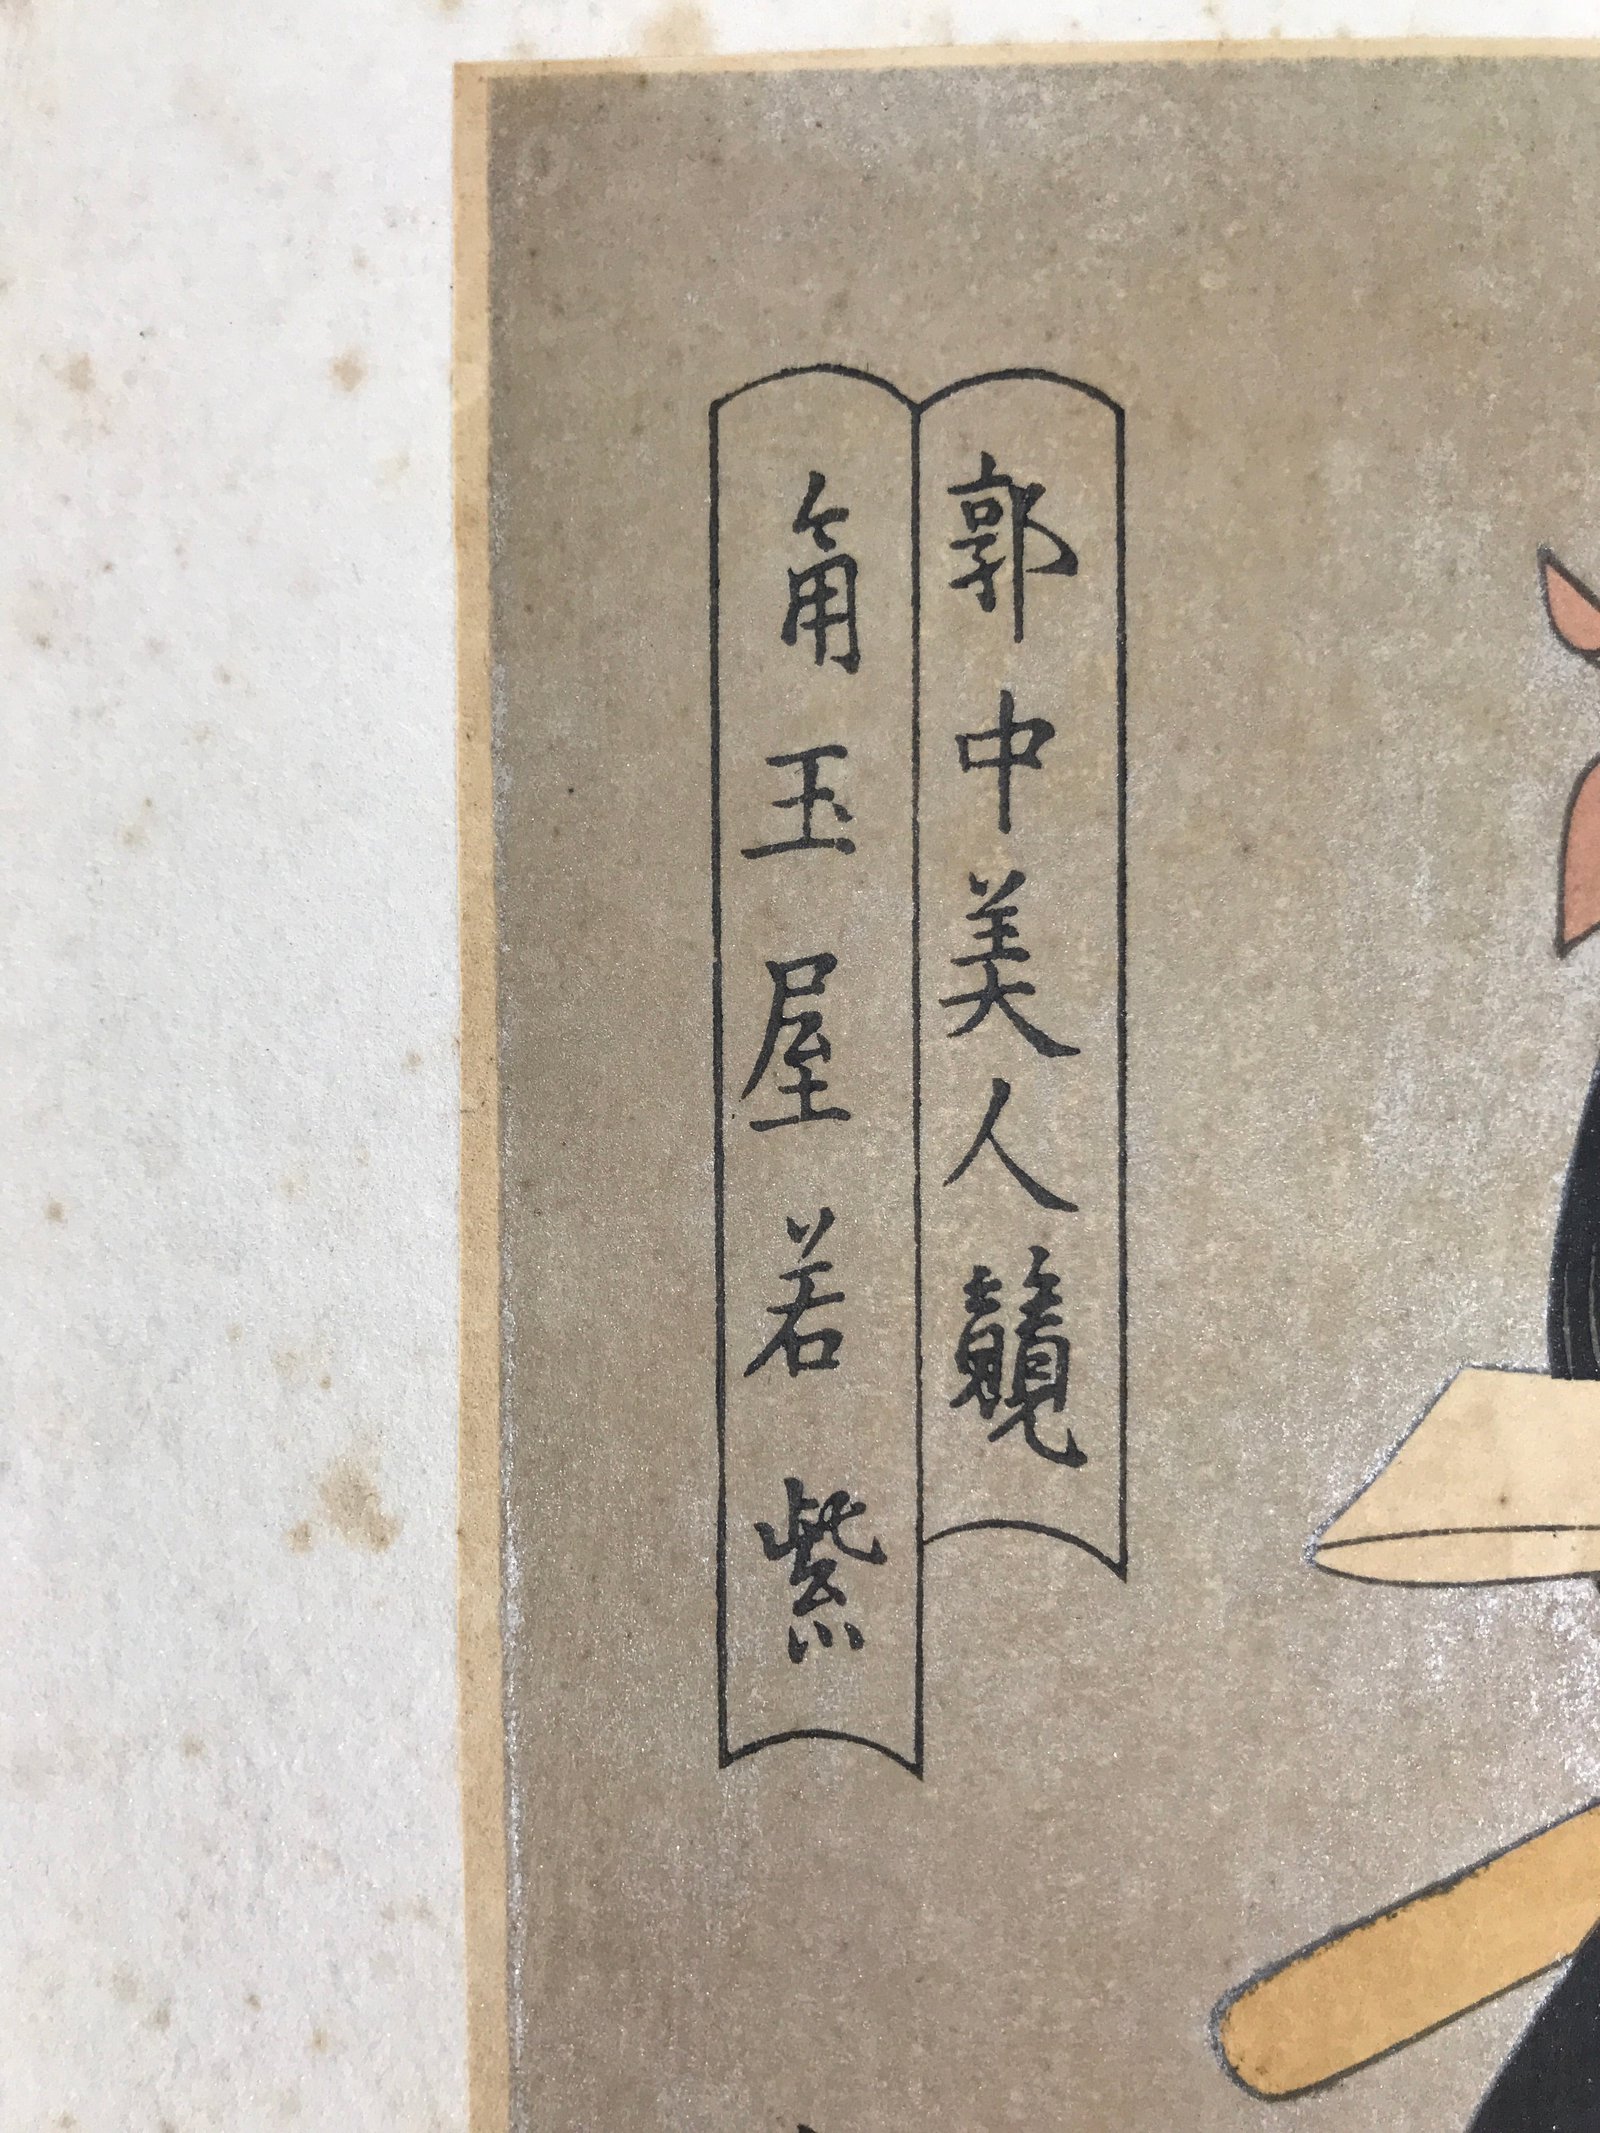 郭中美人競
角玉屋若紫